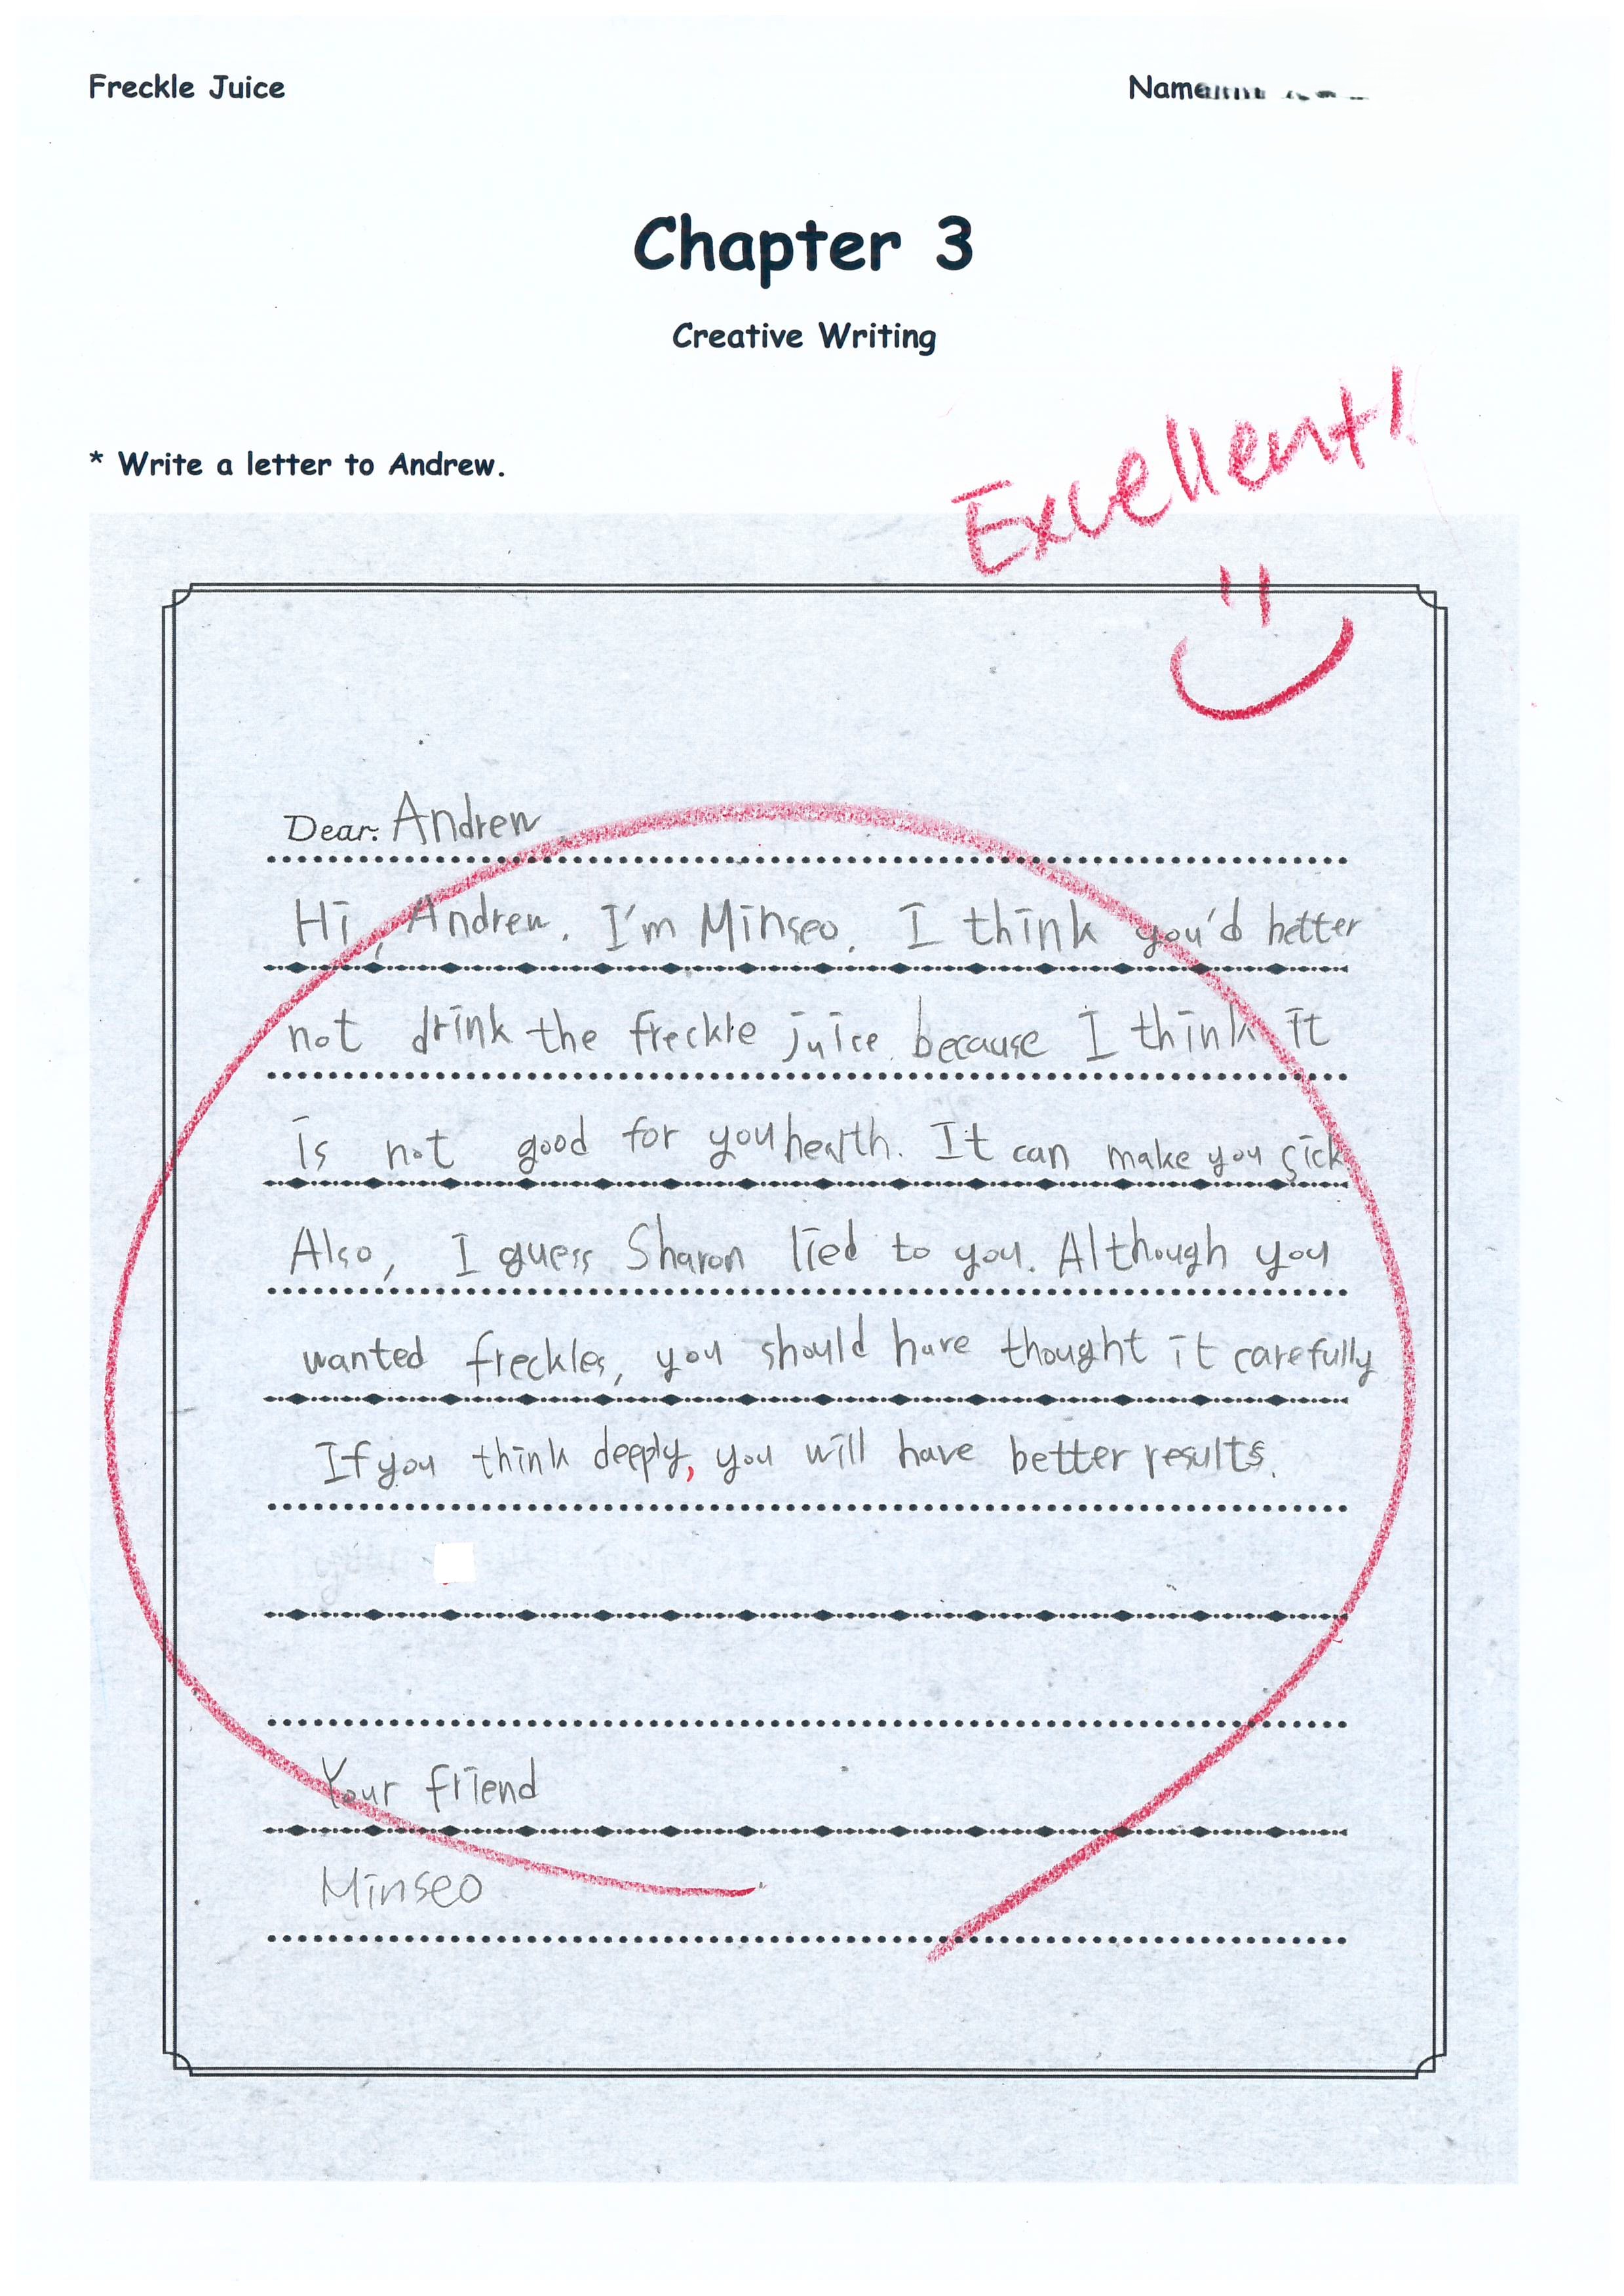 Freckle Juice Name
Chapter 3
Creative Writing
Excellent!
* Write a letter to Andrew.
Dear: Andrew
Hi, Andrew. I'm Minseo. I think you'd better
not drink the freckle juice because I think it
is not good for you health. It can make you sick
Also, I guess Sharon lied to you. Although you
wanted freckles, you should have thought it carefully
If you think deeply, you will have better results.
Your friend
Minseo